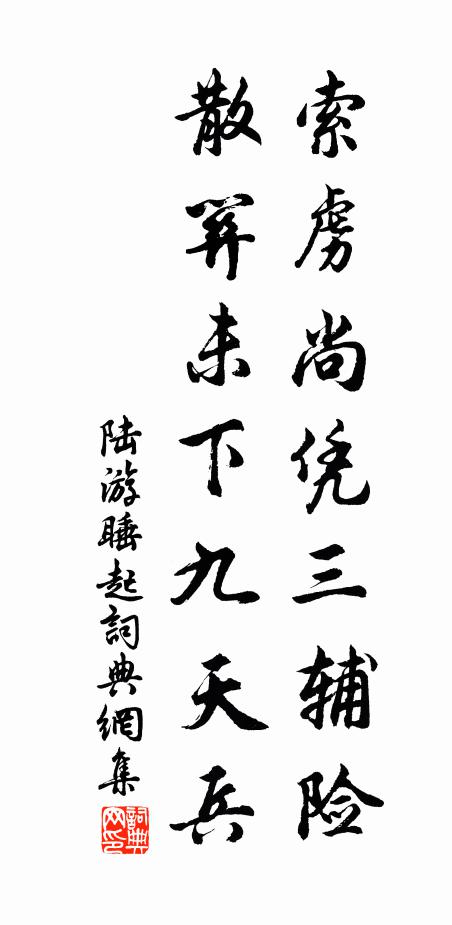 索虏尚凭三辅险
散关未下九天兵
陆游睡起詞典網集
詞典网印